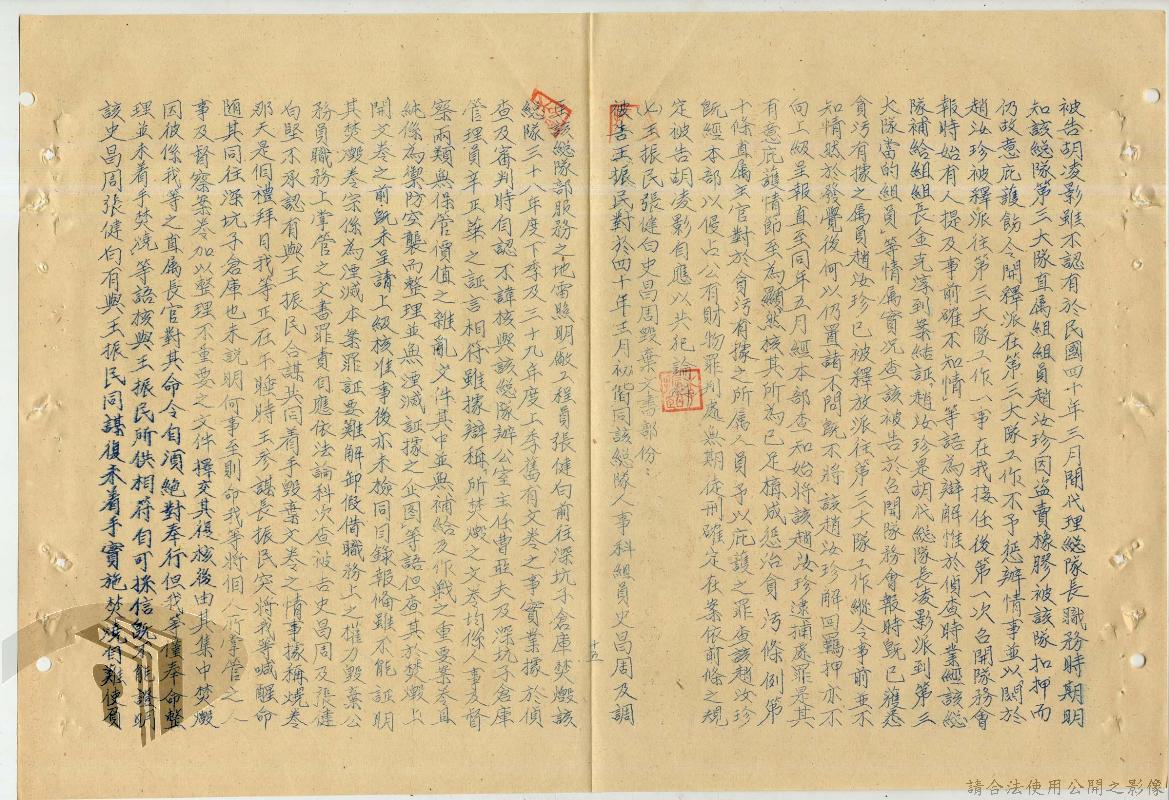 被告胡凌影雖不認有於民國四十年三月間代理總隊長職務時期明
知該總隊第三大隊直属組組員趙汝珍因盜賣橡膠被該隊扣押而
仍故意庇護飭令開釋派在第三大隊工作不予懲辦情事並以関於
趙汝珍被釋派往第三大隊工作一事在我接任後第一次召開隊務會
報時始有人提及事前確不知情等語為辯解惟於偵查時業經該總
隊補給組組長金克澤到案結証「趙汝珍是胡代總隊長凌影派到第三
大隊當的組員」等情属實況查該被告於召開隊務會報時既已獲悉
貪污有據之属員趙汝珍已被釋放派往第三大隊工作縱令事前並不
知情然於發覺後何以仍置諸不問既不將該趙汝珍解回羈押亦不
向上級呈報直至同年五月經本部查知始將該趙汝珍逮捕處罪是其
有意庇護情節至為顯然核其所為已足構成懲治貪污條例第
十條直属主官對於貪污有據之所属人員予以庇護之罪查該趙汝珍
既經本部以侵占公有財物罪判處無期徒刑確定在案依前條之規
定被告胡凌影自應以共犯論
㈥王振民張健白史昌周毀棄文書部份：
被告王振民對於四十年三月初偕同該總隊人事科組員史昌周及調
在該總隊部服務之地雷照明敵工程員張健白前往深坑子倉庫焚燬該
總隊三十八年度下季及三十九年度上季舊有文卷之事實業據於偵
查及審判時自認不諱核與該總隊辦公室主任曹亞夫及深坑子倉庫
管理員辛正華之証言相符雖據辯稱「所焚燬之文卷均係人事及督
察兩類無保管價值之雜亂文件其中並無補給及作戰之重要案卷且
純係為禦防空襲而整理並無湮滅証據之企圖」等語但查其於焚燬上
開文卷之前既未呈請上級核准事後亦未檢同目錄報備雖不能証明
其焚燬卷宗係為湮滅本案罪証要難解卸假借職務上之權力毀棄公
務員職務上掌管之文書罪責自應依法論科次查被告史昌周及張健
白堅不承認有與王振民合謀共同着手毀棄文卷之情事據稱燒卷
那天是個禮拜日我等正在午睡時王參謀長振民突將我等喊醒命
隨其同往深坑子倉庫也未說明何事至則命我等將個人所掌管之人
事及督察案卷加以整理不重要之文件擇交其復核後由其集中焚燬
因彼係我等之直属長官對其命令自須絕對奉行但我等僅奉命整
理並未着手焚燒」等語核與王振民所供相符自可採信既能證明
該史昌周張健白有與王振民同謀復未着手實施焚燒自難使負
十五
請合法使用公開之影像